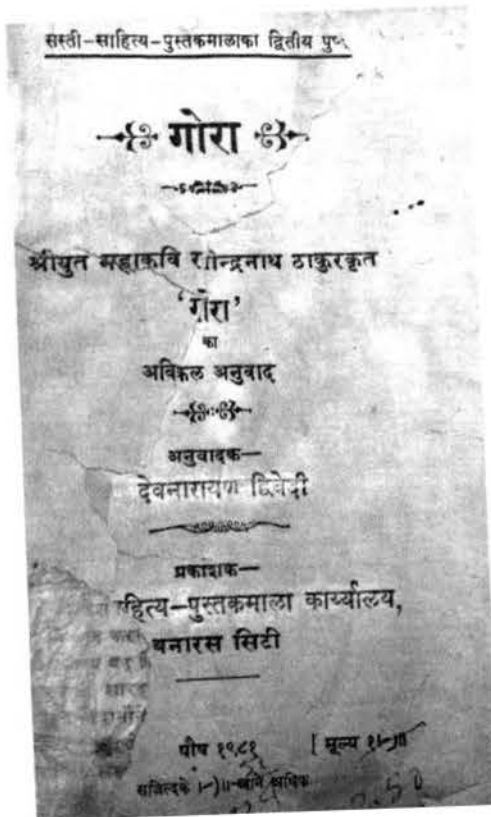 सस्ती-साहित्य-पुस्तकमालाका द्वितीय
गोरा
श्रीयुत महाकवि ठाकुरकृत
'गोरा'
का
अविकल अनुवाद
अनुवादक—
देवनारायण द्विवेदी
प्रकाशक—
पुस्तकमाला कार्य्यालय,
बनारस सिटी
पौष १९८१ [ मूल्य
सजिल्दके अधिक